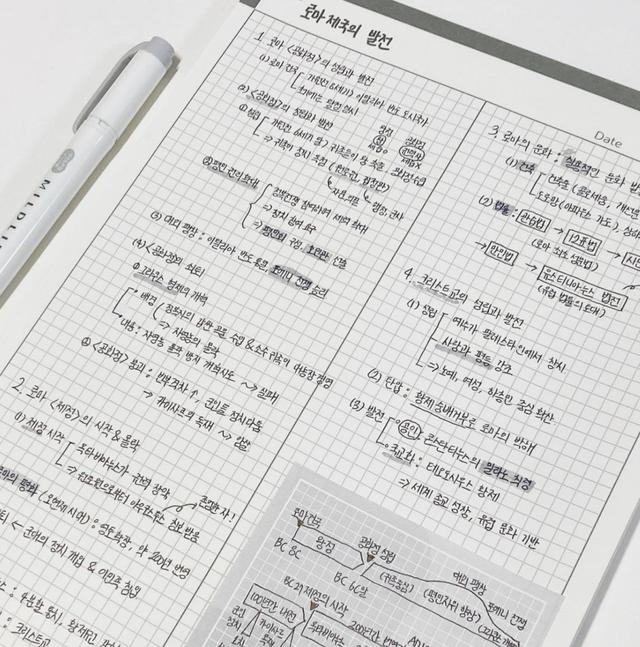 로마 제국의 발전
1. 로마 <공화정>의 성립과 발전
(1) 로마 건국
기원전 8세기) 이탈리아 반도 도시국가
초기에는 왕정 실시
(2) <공화정>의 성립과 발전
왕정 공화정
① 성립
기원전 6세기 말) 귀족들이 왕 축출, 공화정 수립
⇒ 귀족이 정치 주도 (원로원, 집정관)
② 평민권 확대
전쟁 참여하여 세력 확대
⇒ 정치 참여 요구
⇒ 평민회 구성, 호민관 선출
(3) 대외 팽창 : 이탈리아 반도 통일, 포에니 전쟁 승리
(4) <공화정>의 쇠퇴
① 그라쿠스 형제의 개혁
배경
정복지의 값싼 곡물 수입 & 소수 귀족의 대농장 경영
⇒ 자영농의 몰락
내용 : 자영농 몰락 방지 개혁시도 ~> 실패
② <공화정> 붕괴 : 빈부격차 ↑, 군인들 정치다툼
⇒ 카이사르의 독재 ~> 암살
2. 로마 <제정>의 시작 & 몰락
(1) 제정 시작
옥타비아누스가 권력 장악
⇒ 원로원으로부터 아우구스투스 칭호 받음
존엄한 자!
로마의 평화 (오현제 시대) : 영토확장, 약 200년 번영
← 군대의 정치 개입 & 이민족 침입
: 4분할 통치,
: 크리스트교
Date
3. 로마의 문화 : 실용적인 문화
(1) 건축
건축물 (콜로세움, 개선문
도로망 (아피우스 가도),
(2) 법률 : 관습법 → 12표법 →
(로마 최초 성문법)
→ 만민법 → 유스티니아누스 법전
(유럽 법률의 토대)
4. 크리스트교의 성립과 발전
(1) 성립
예수가 팔레스타인에서 창시
사랑과 평등 강조
⇒ 노예, 여성, 하층민 중심 확산
(2) 탄압 : 황제 숭배거부로 로마의 박해
(3) 발전
공인 : 콘스탄티누스의 밀라노 칙령
국교화 : 테오도시우스 황제
⇒ 세계 종교 성장, 유럽 문화 기반
로마 건국
왕정
공화정 성립
BC 8C
BC 6C말
(귀족중심)
(평민지위 향상)
대외 팽창
포에니 전쟁
BC 27 제정의 시작
100년간 내란
군인 정치
카이사르 독재
옥타비아누스
200년간 번영